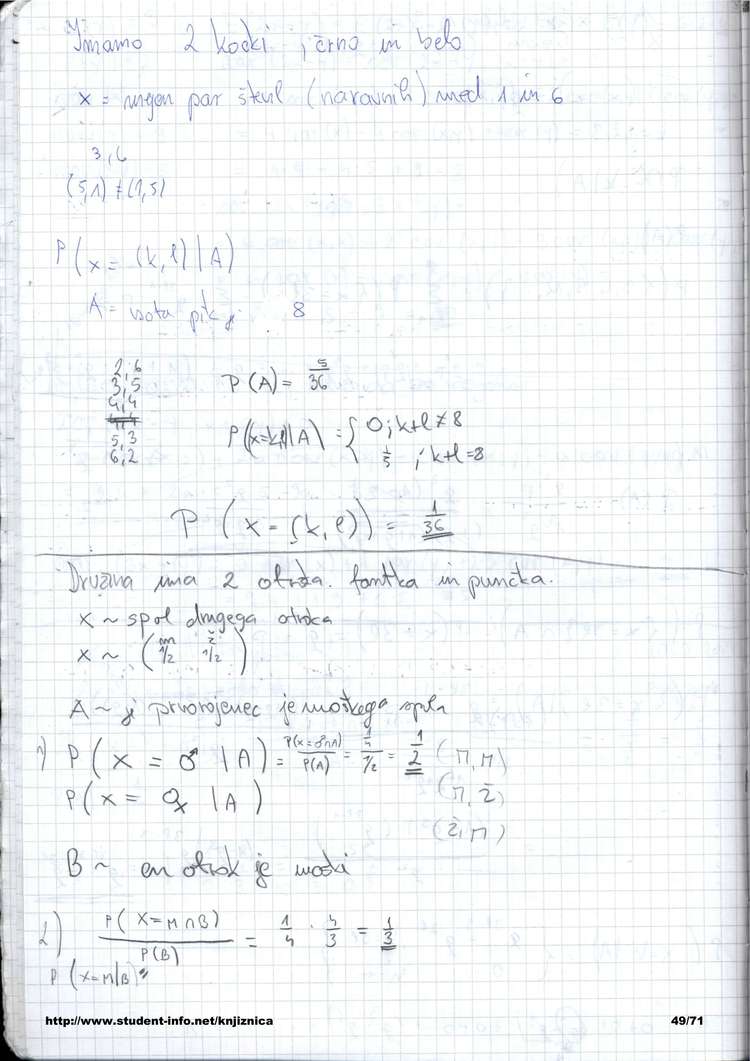 Imamo 2 kocki, črno in belo
x = urejen par števil (naravnih) med 1 in 6
3, 6
(5,1) ≠ (1,5)
P(x = (k, l) | A)
A = vsota pik je 8
2,6
3,5
4,4
5,3
6,2
P(A) = 5/36
P(x=k,l | A) = { 0 ; k+l ≠ 8
1/5 ; k+l = 8
P(x = (k, l)) = 1/36
Družina ima 2 otroka. fantka in punčka.
X ~ spol drugega otroka
X ~ (m ž
1/2 1/2)
A ~ je prvorojenec je moškega spola
1) P(X = ♂ | A) = P(X=♂∩A)/P(A) = 1/4 / 1/2 = 1/2 (M, M)
P(X = ♀ | A) (M, Ž)
(Ž, M)
B ~ en otrok je moški
2) P(X=M∩B)/P(B) = 1/4 · 4/3 = 1/3
P(X=M|B)
http://www.student-info.net/knjiznica 49/71